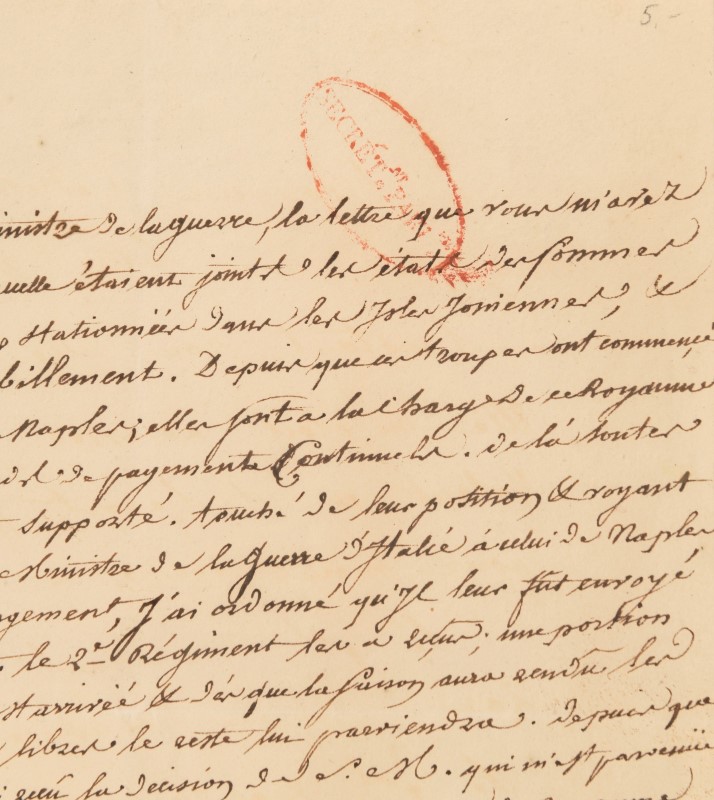 5.-
SECRET. ET PART
inistre de la guerre, la lettre que vous m'avez
quelle étaient joints les états des Sommes
stationnées dans les Isles Joniennes, &
billement. Depuis que ces troupes ont commencé
Naples; elles sont a la charge de ce Royaume
de payements Continuels. de là toutes
supporté. touché de leur position & voyant
Ministre de la Guerre d'Italie à celui de Naples
gement, J'ai ordonné qu'Il leur fût envoyé
le 2.e Régiment les a reçus; une portion
st arrivée & dès que la Saison aura rendû les
libres le reste lui parviendra. depuis que
reçû la décision de S. M. qui m'est parvenüe